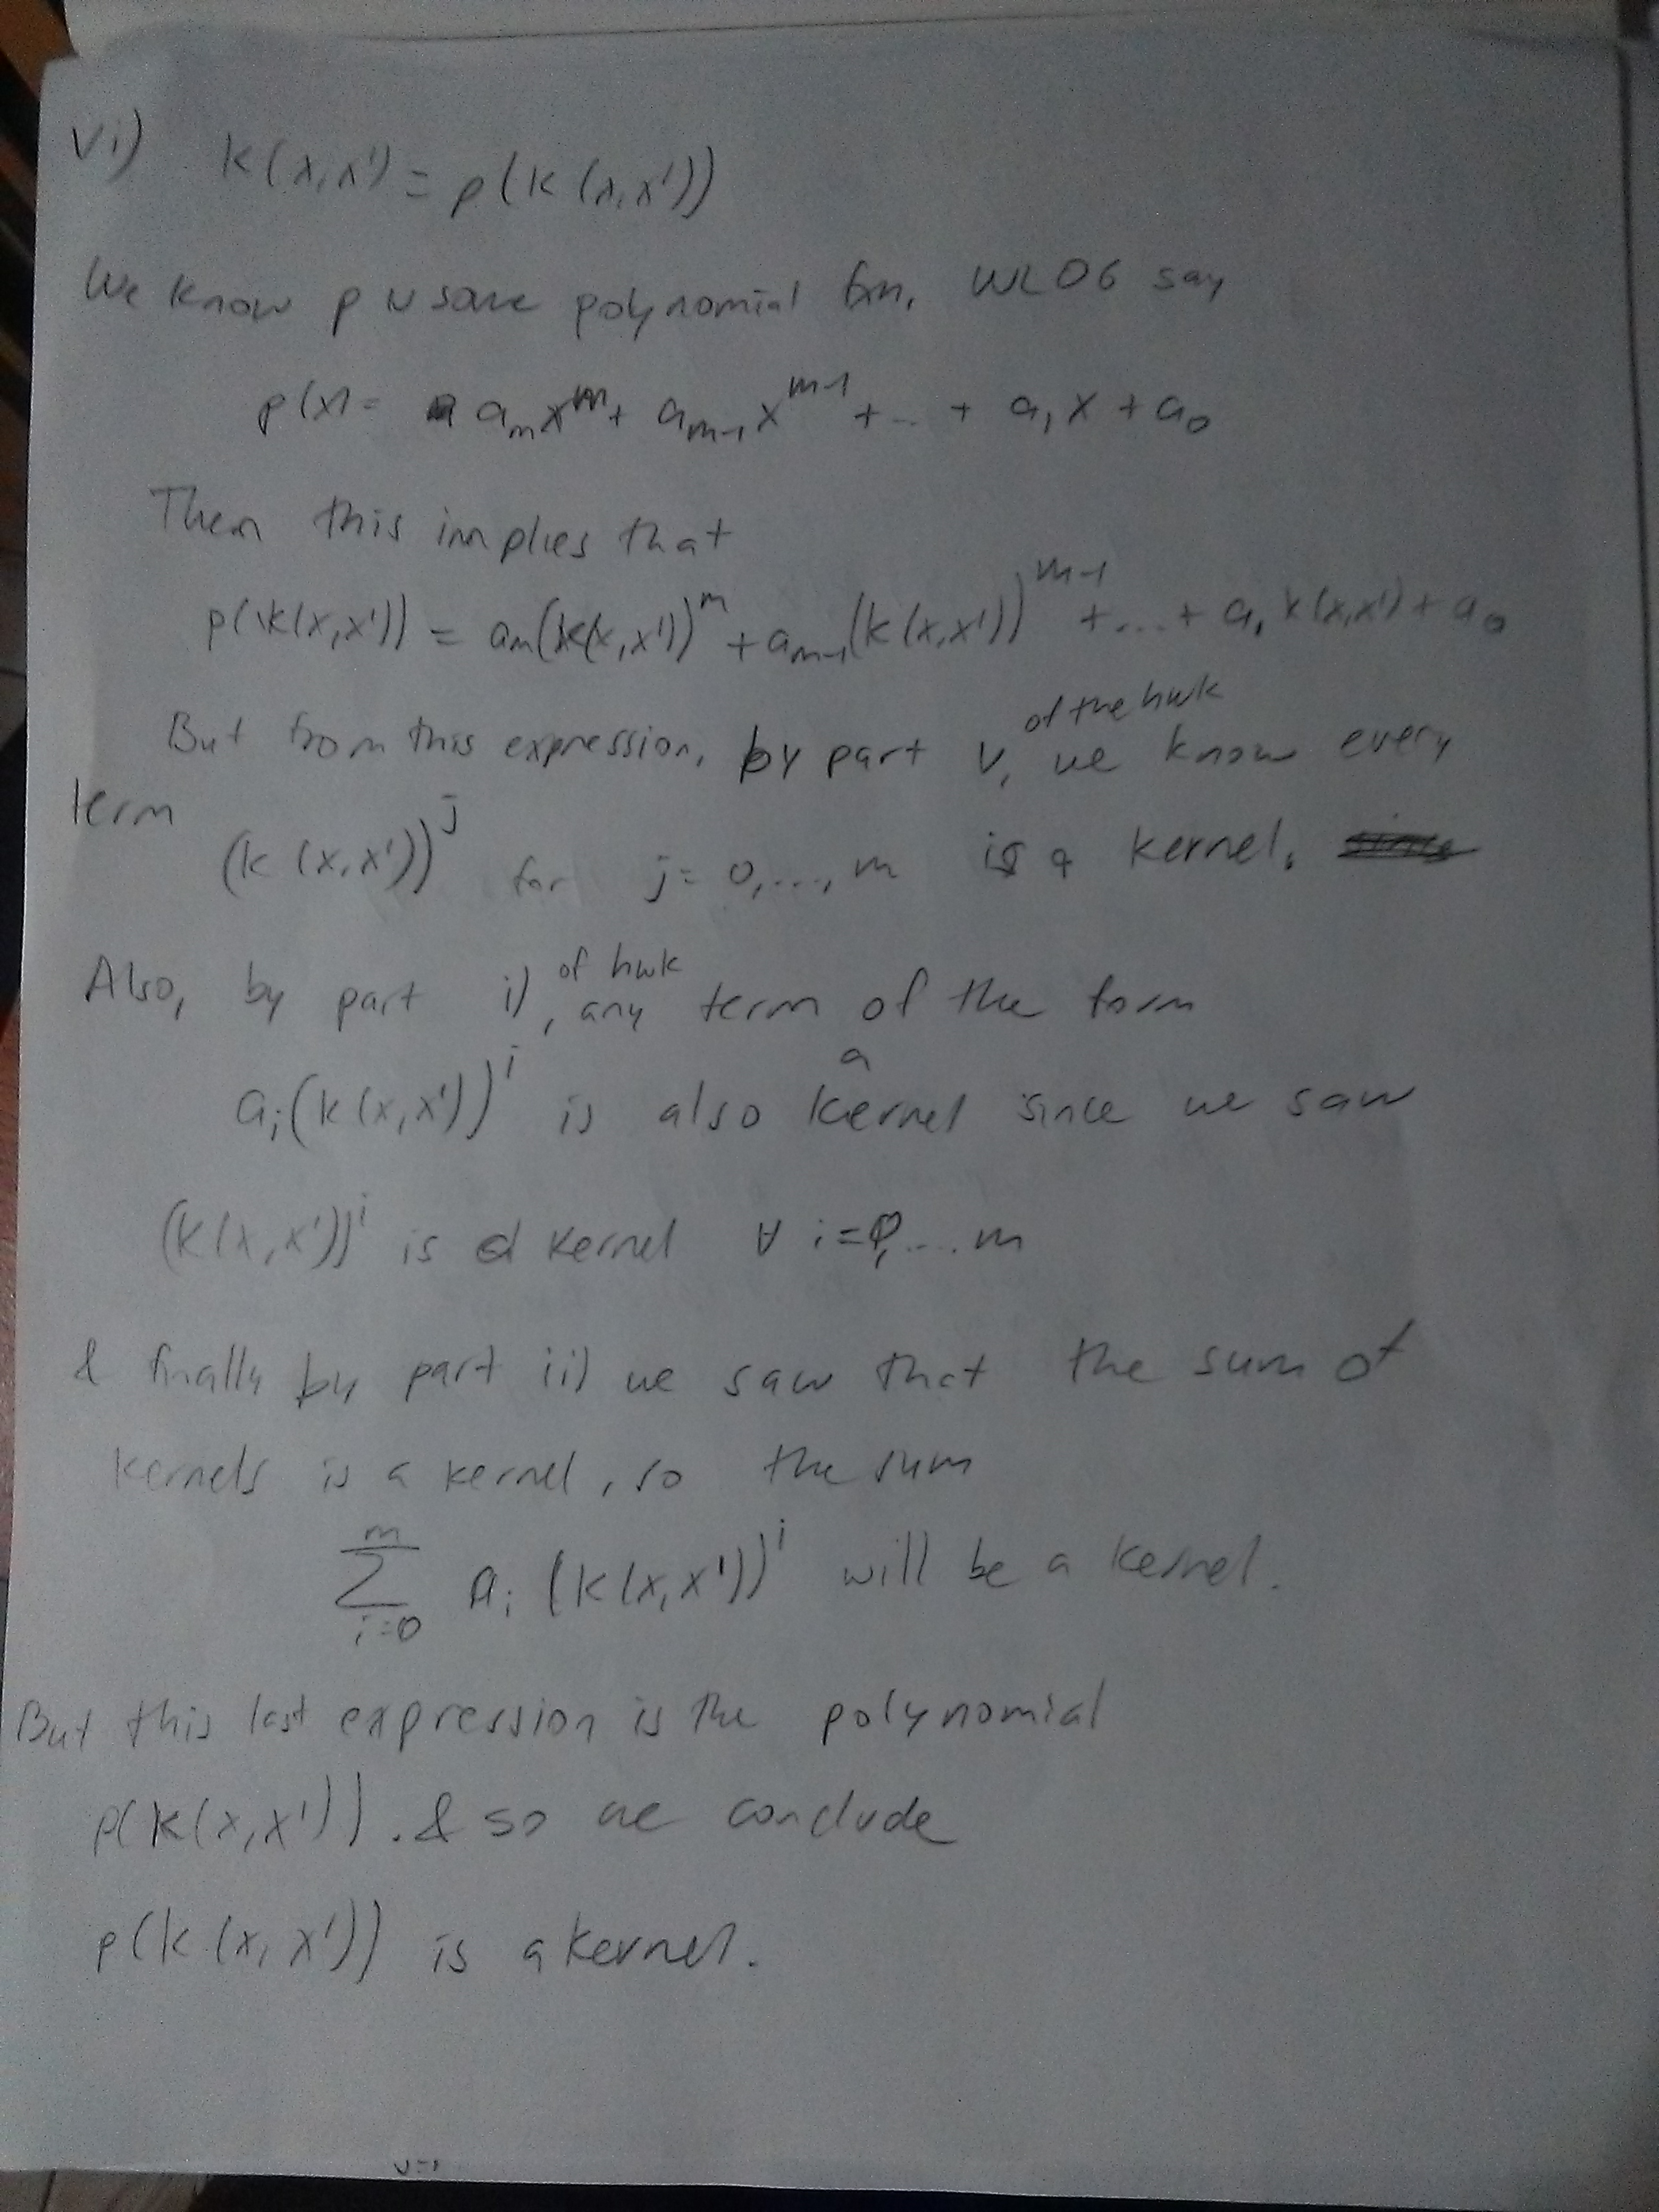 vi) k(x,x') = p(k(x,x'))
We know p is some polynomial fxn, WLOG say
p(x) = a_m x^m + a_{m-1} x^{m-1} + ... + a_1 x + a_0
Then this implies that
p(k(x,x')) = a_m(k(x,x'))^m + a_{m-1}(k(x,x'))^{m-1} + ... + a_1 k(x,x') + a_0
But from this expression, by part v, of the hwk we know every
term (k(x,x'))^j for j = 0,...,m is a kernel.
Also, by part i) of hwk, any term of the form
a_i(k(x,x'))^i is also a kernel since we saw
(k(x,x'))^i is a kernel ∀ i=0,...m
& finally by part ii) we saw that the sum of
kernels is a kernel, so the sum
∑_{i=0}^{m} a_i (k(x,x'))^i will be a kernel.
But this last expression is the polynomial
p(k(x,x')). & so we conclude
p(k(x,x')) is a kernel.